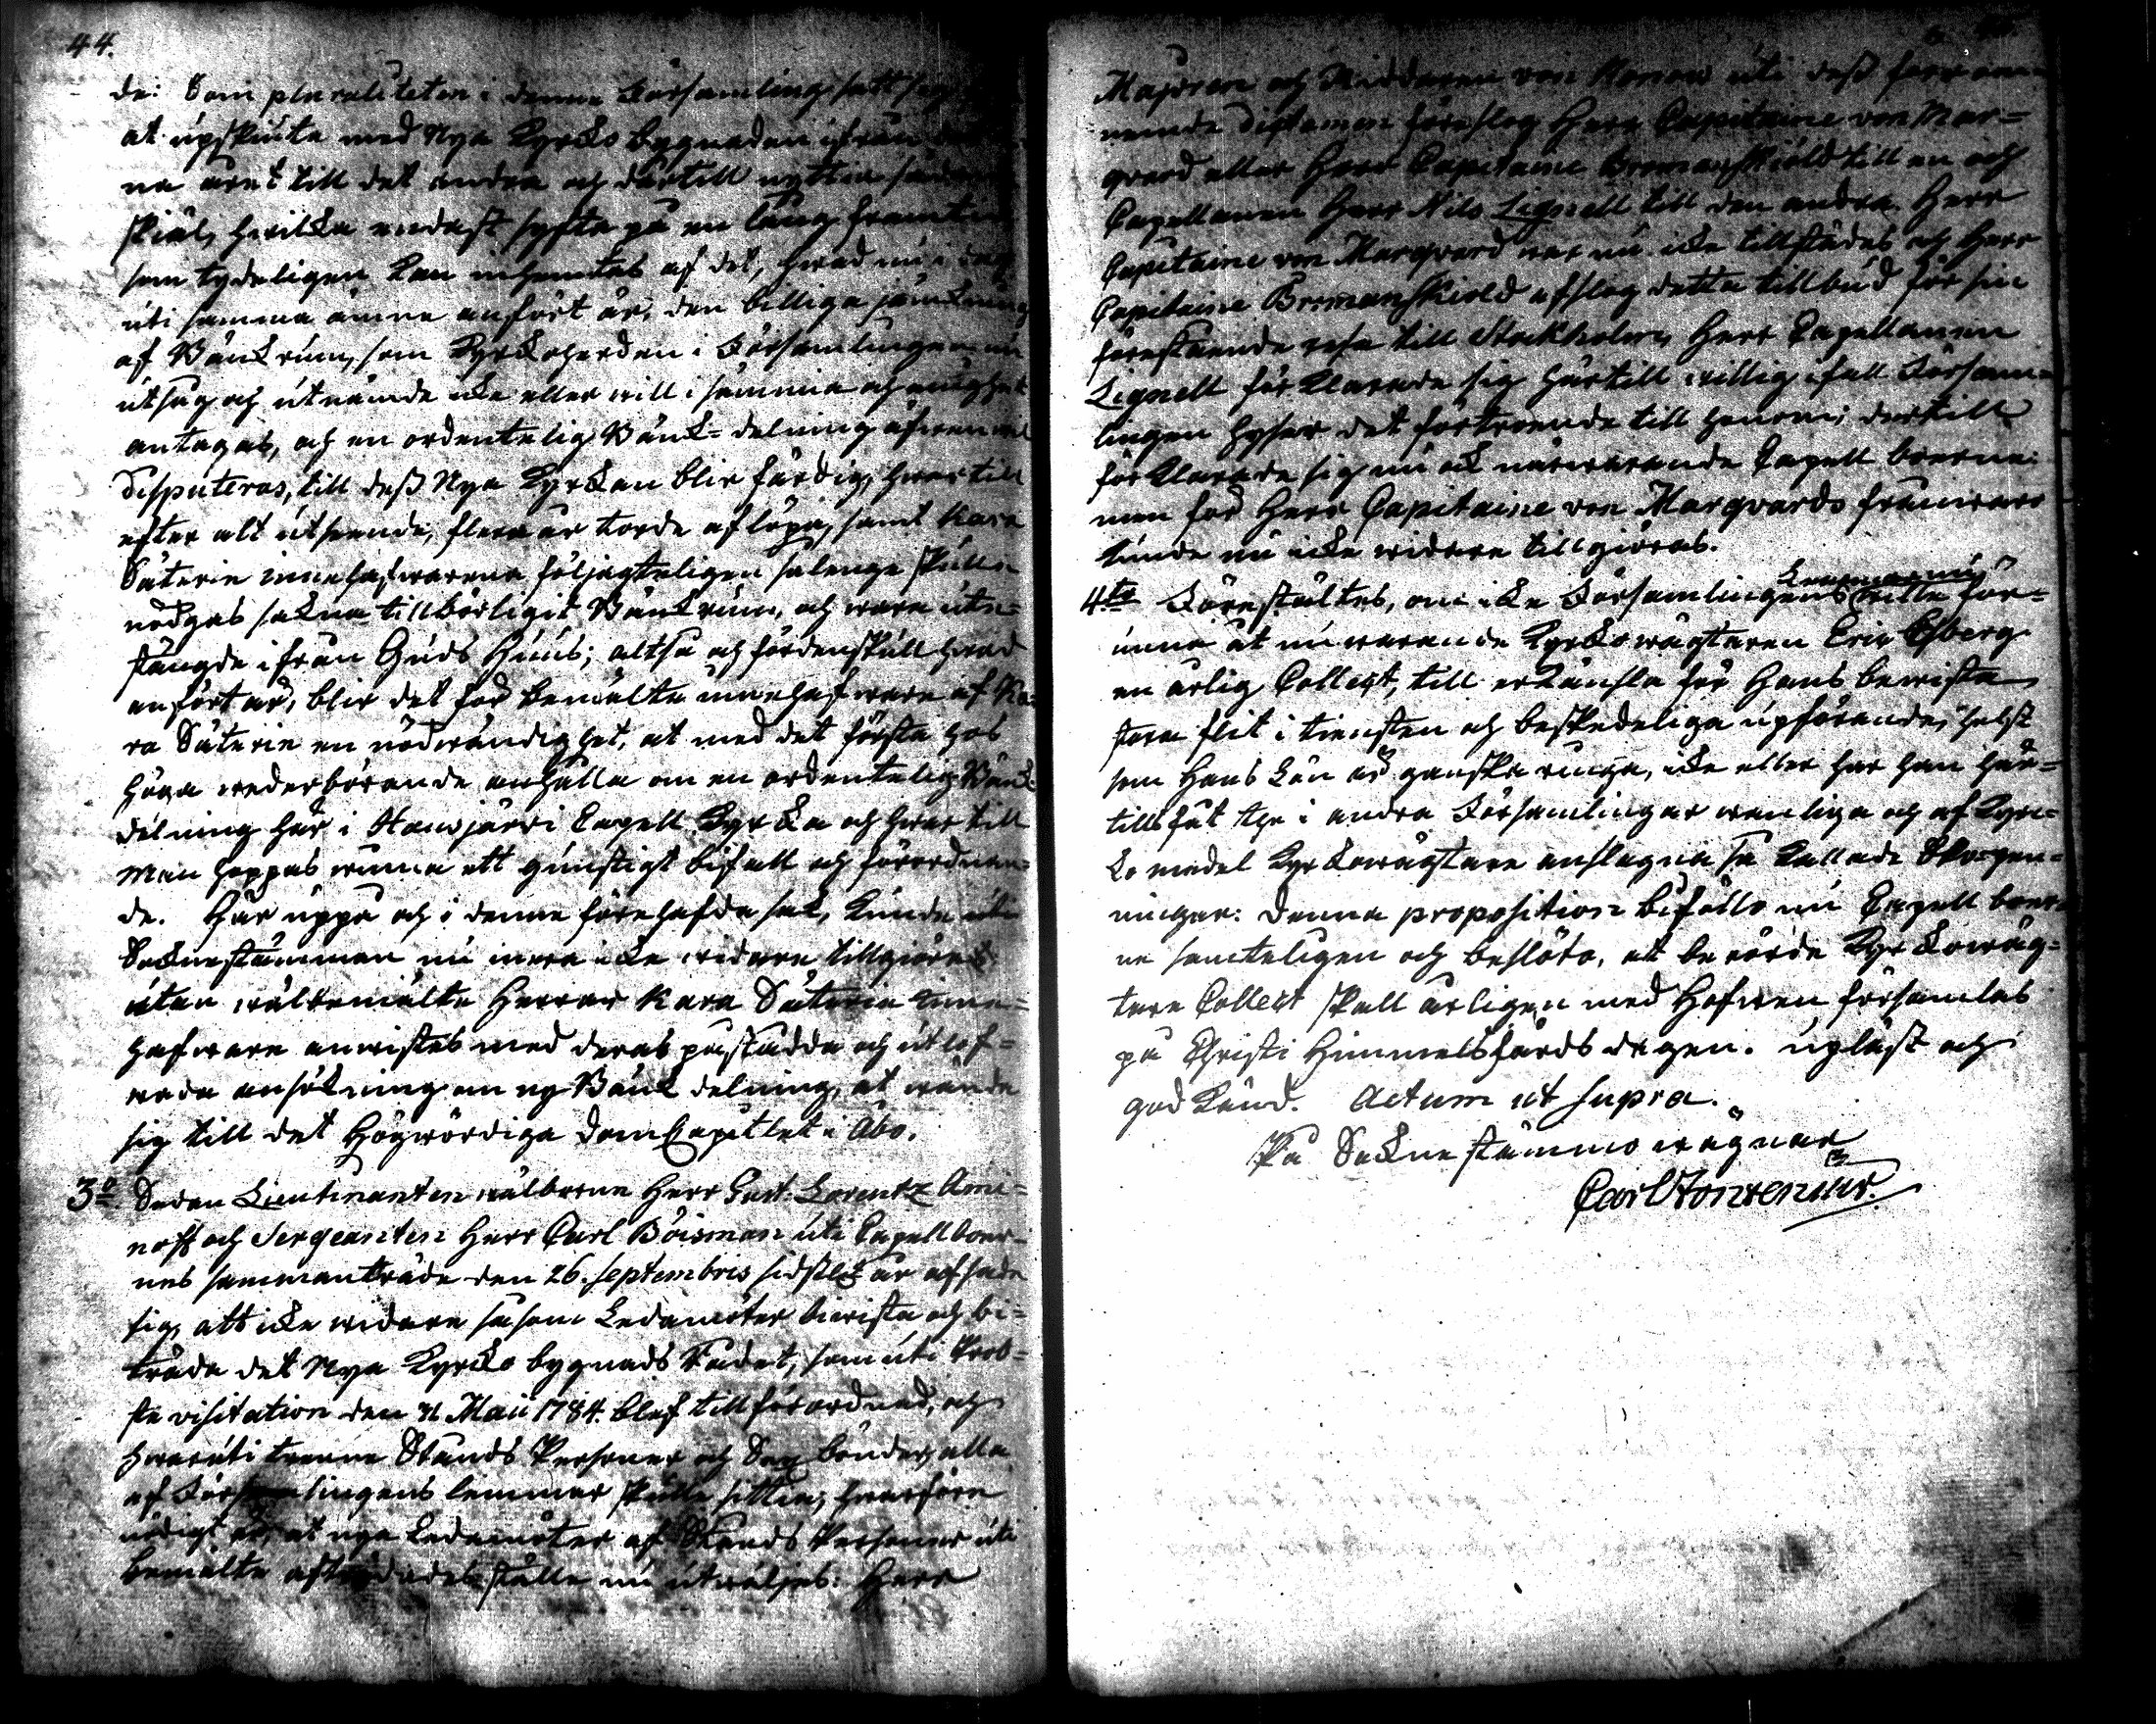 44.
de: Som pluraliteten i denne Församling satt sig
at upskiuta med Nya Kyrko bygnaden ifrån det
na året till det andra och dertill nyttia sådana
skiäl, hwilka endast syfta på en lång framtid
som tydeligen kan inhemtas af det, hwad nu i dag
uti samma ämne anfört är, den billiga jämkning
af Bänkrum, som Kyrkoherden i Församlingen nu
utsåg och utnämde icke eller will i sämmia och enighet
antagas, och en ordentelig Bänk-delning äfwen wil
disputeras, till dess Nya Kyrkan blir färdig, hwartill
efter alt utseende, flera år torde aflöpa, samt Kara
Säterie innehafwarena följagteligen sålenge skulle
nödgas sakna tillbörligit Bänkrum, och wara ute-
stängde ifrån Guds Huus; altså och fördenskull hwad
anfört är, blir det för bemälte innehafware af Ka-
ra Säterie en nödwändighet, at med det första hos
höga wederbörande anhålla om en ordentelig Bänk
delning här i Hausjärwi Capell Kyrka och hwartill
man hoppas winna ett gunstigt bifall och förordnan-
de. Här uppå och i denne förehafda sak, kunde uti
Sockne stämman nu mera icke widare tillgiöras
utan wälbemälte Herrar Kara Säterie inne-
hafware anwistes med deras påstådda och utlof-
wade ansökning om ny Bänk delning, at wända
sig till det Högwördiga DomCapitlet i Åbo.
3o. Sedan Lieutenanten wälborne Herr Gust: Lorentz Ami-
noff och Sergeanten Herr Carl Boisman uti Capellboer-
nes sammanträde den 26. Septembris sidstl: år afsade
sig, att icke widare såsom Ledamöter biwista och bi-
träda det Nya Kyrko bygnads Rådet, som uti Prob-
ste visitation den 31 Maii 1784. blef tillförordnad, och
hwaruti trenne Stånds Personer och Sex bönder, alla
af Församlingens lemmar skulle sittia; hwarföre
nödigt är, at nya Ledamöter af Stånds Personer uti
bemälte afträdades ställe nu utwäljes: Herr
Majoren och Riddaren von Konow uti dess förenäm-
nemde dictamen föreslog Herr Capitaine von Mar-
qvard eller Herr Capitaine Bromanskiöld till en och
Capellanen Herr Nils Lignell till den andra. Herr
Capitaine von Marqvard war nu icke tillstädes och Herr
Capitaine Bromanskiold afslog detta tillbud för sin
förestående resa till Stockholm, Herr Capellanen
Lignell förklarade sig härtill willig ifall Försam-
lingen hyser det förtroende till honom; dertill
förklarade sig nu ock närwarande Capell boerne:
men för Herr Capitaine von Marqvards frånwaro
kunde nu icke widare tillgiöras.
4to Föreställtes, om icke Församlingens Lemmar nu wille för-
unna åt nuwarande Kyrkowägtaren Eric Esberg
en årlig Collect, till erkänsla för Hans bewista
stora flit i tiensten och beskedeliga upförande, helst
som Hans Lön är ganska ringa, icke eller har han här-
tills fåt the i andra Församlingar wanliga och af Kyrc-
ko medel Kyrkowägtare anslagna så kallade Sko-pen-
ningar: Denna proposition biföllo nu Capell boer-
ne samteligen och beslöto, at berörde Kyrkowäg-
tare Collect skall årligen med Hafwen församlas
på Christi Himmelsfärds dagen. upläst och
godkänd. Actum ut supra.
På Sockne stämmo wägnar